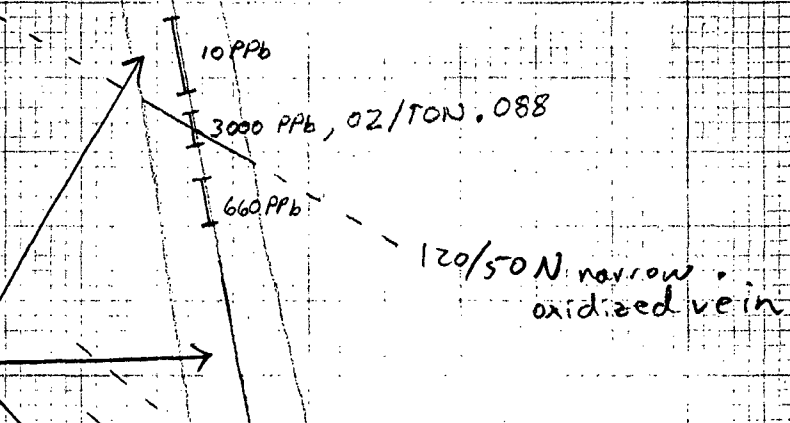 10 PPb
3000 PPb, OZ/TON .088
660 PPb
120/50 N narrow
oxidized vein